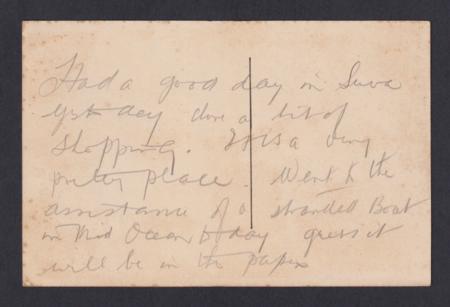 Had a good day in Suva
yesterday done a bit of
shopping. It is a very
pretty place. Went to the
assistance of a stranded Boat
in Mid Ocean to day guess it
will be in the papers